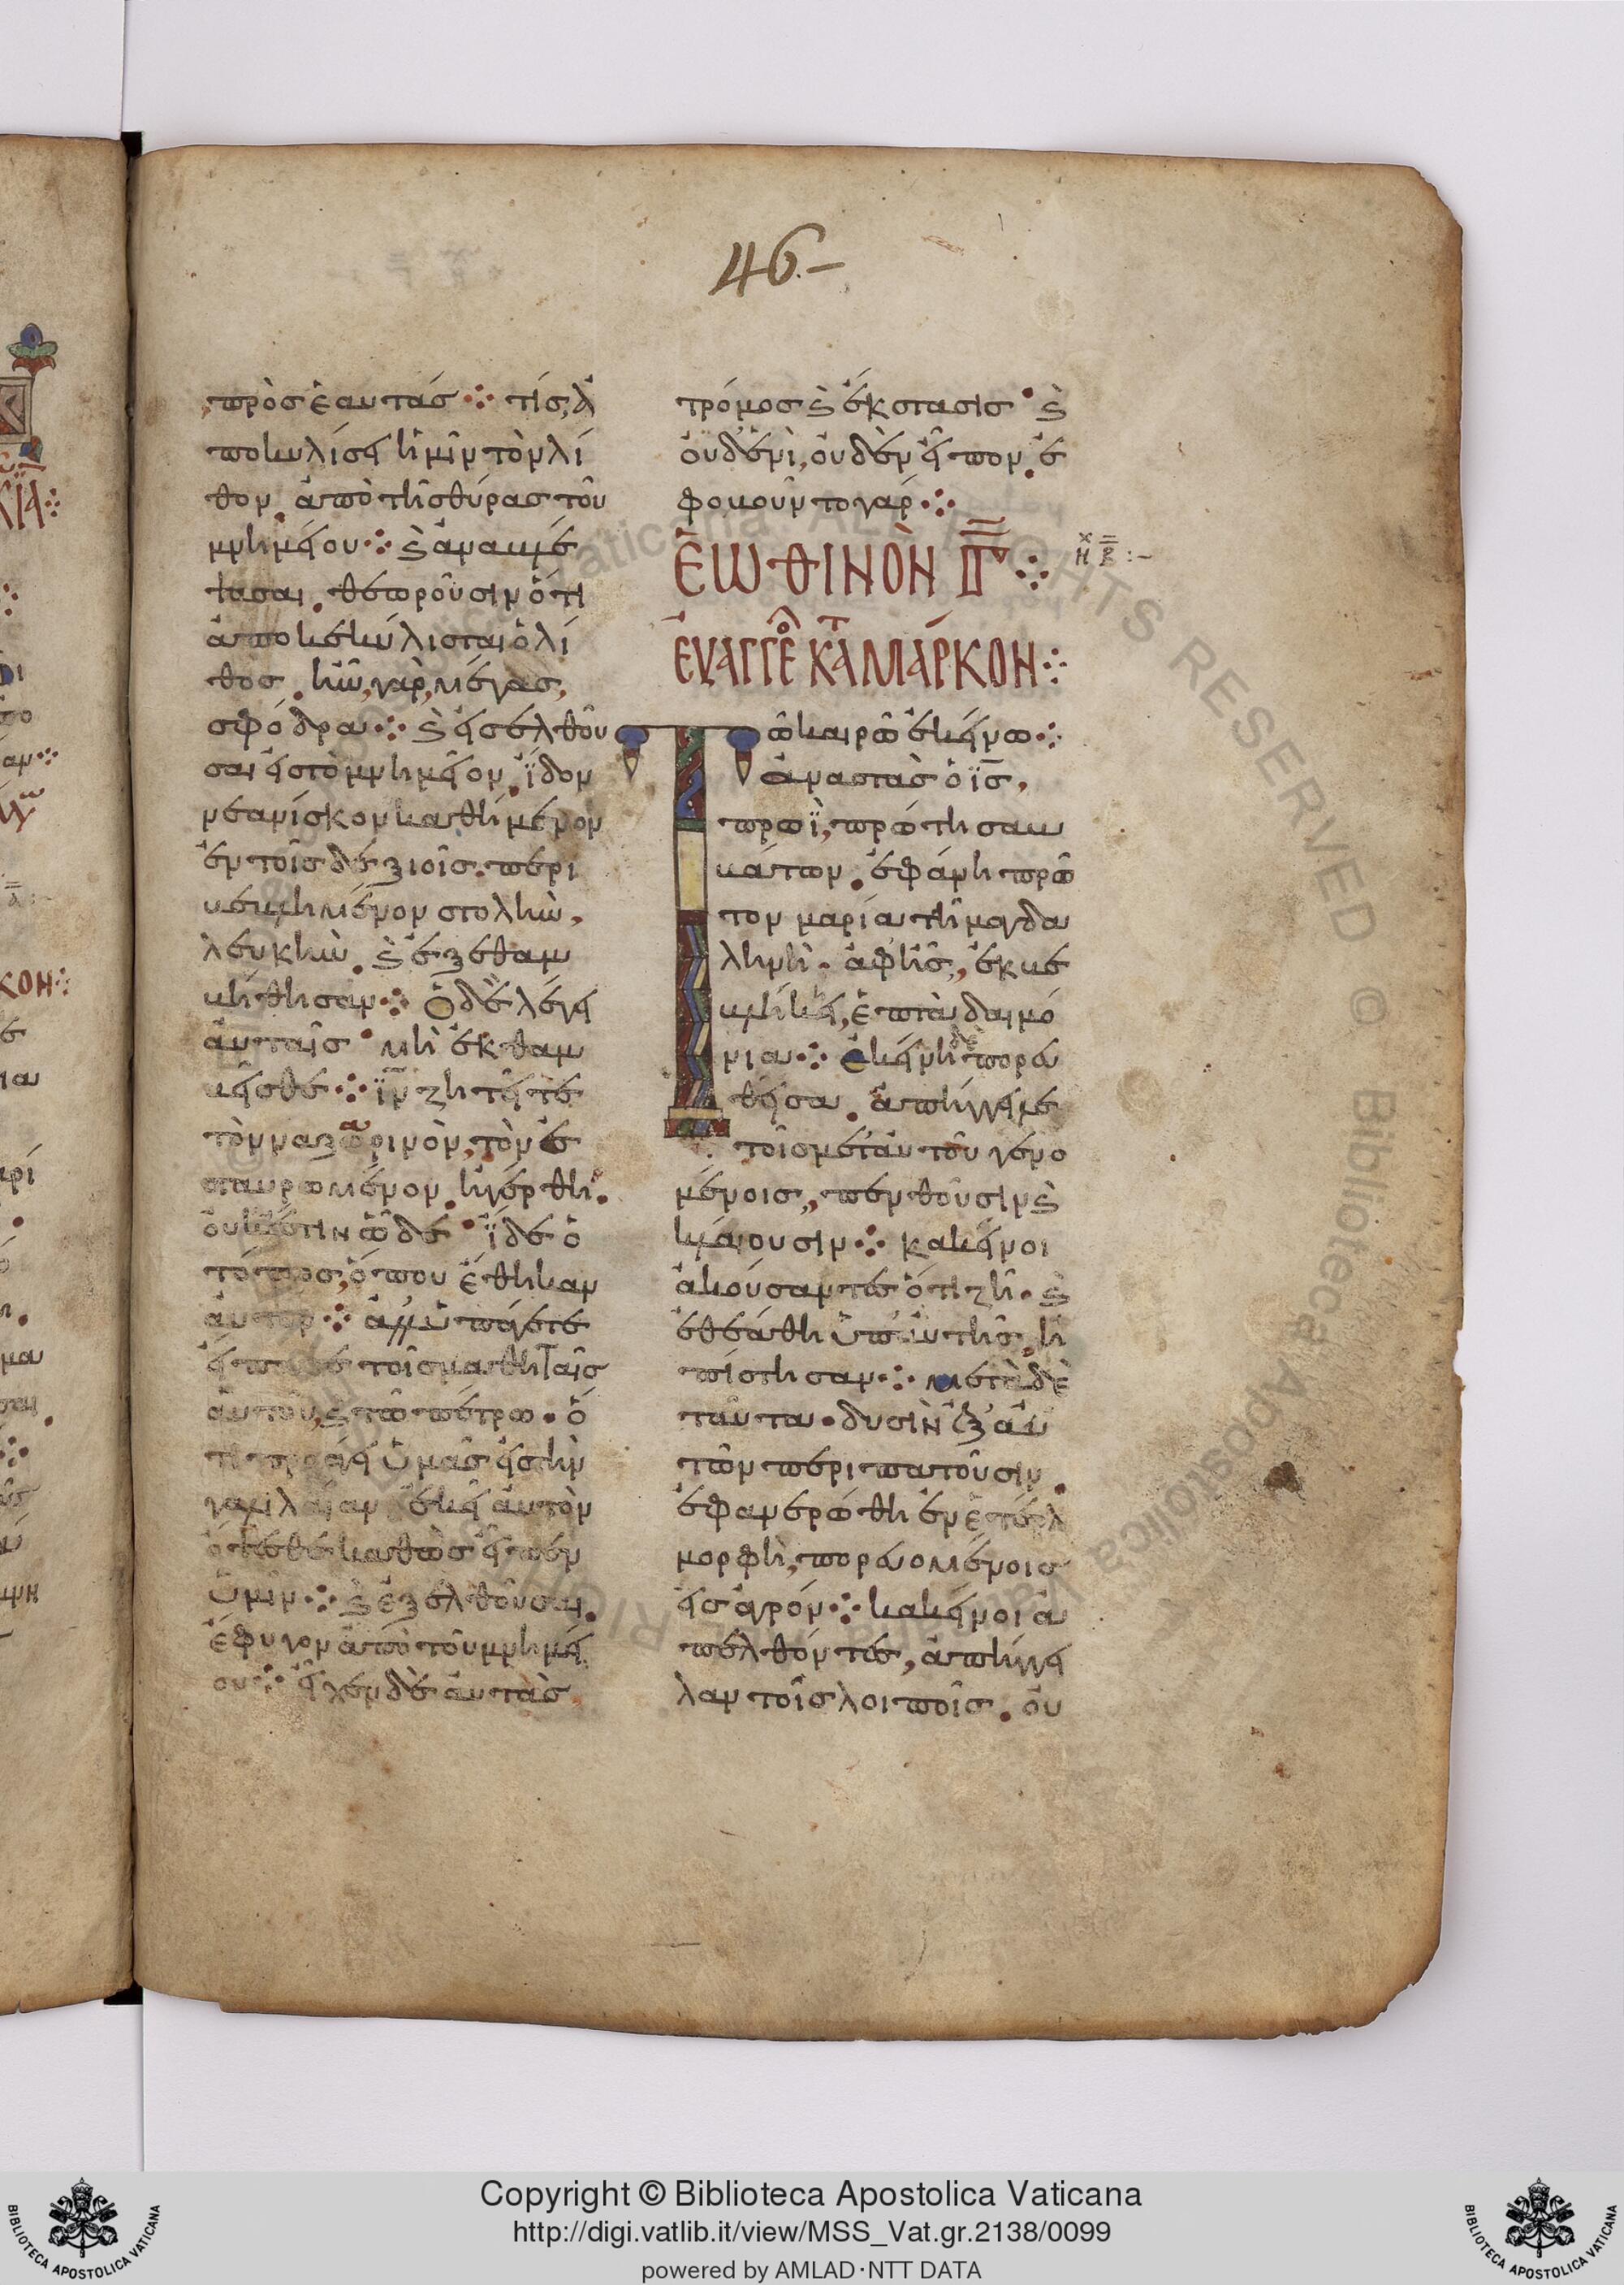 46.-
πρὸς ἑαυτάς ⁘ τίς, ἀ
ποκυλίσει ἡμῖν τὸν λί
θον. ἀπὸ τῆς θύρας τοῦ
μνημείου ⁘ ϗ ἀναβλέ
ψασαι. θεωροῦσιν ὅτι
ἀποκεκύλισται ὁ λί
θος. ἦν, γὰρ, μέγας,
σφόδρα ⁘ ϗ εἰσελθοῦ
σαι εἰς τὸ μνημεῖον. ἴδον
νεανίσκον καθήμενον
ἐν τοῖς δεξιοῖς. περι
βεβλημένον στολὴν,
λευκὴν. ϗ ἐξεθαμ
βήθησαν ⁘ Ὁ δὲ λέγει
αὐταῖς · μὴ ἐκθαμ
βεῖσθε ⁘ ι̅ν̅ ζητεῖτε
τὸν ναζωρινὸν, τὸν ἐσ
σταυρωμένον. ἠγέρθη.
οὐκ ἔστιν ὧδε · ἴδε ὁ
τόπος, ὅπου ἔθηκαν
αὐτον ⁘ ἀλλ' ὑπάγετε
εἴπατε τοῖς μαθηταῖς
αὐτοῦ, ϗ τῶ πέτρω. ὅ
τι προάγει ὑμᾶς εἰς τὴν
γαλιλαίαν ἐκεῖ αὐτὸν
ὄψεσθε καθὼς εἶπεν
ὑμῖν ⁘ ϗ ἐξελθοῦσαι.
ἔφυγον ἀπὸ τοῦ μνημεί
ου ⁘ εἶχεν δὲ αὐτὰς
τρόμος ϗ ἔκστασις · ϗ
οὐδένὶ, οὐδὲν εἶπον. ἐ
φοβοῦντο γάρ ⁘
ἙΩΘΙΝῸΝ Γ̅ ⁘
ΕΥΑΓΓΕΛ ΚΑΤ ΜΆΡΚΟΝ ⁘
Τῶ καιρῶ ἐκείνω ⁘
ἀναστὰς ὁ ι̅ς̅,
πρωῒ, πρώτη σαβ
βάτων. ἐφάνη πρῶ
τον μαρία τῆ μαγδα
ληνὴ. ἀφ' ἧς, ἐκβε
βλήκει, ἑπτὰ δαιμό
νια ⁘ ἐκείνη δὲ πορευ
θεῖσα. ἀπήγγειλε
τοῖς μετ' αὐτοῦ γενο
μένοις,, πενθοῦσιν ϗ
κλαίουσιν ⁘ κακεῖνοι
ἀκούσαντες ὅτι ζῆ. ϗ
ἐθεάθη ὑπ' αὐτῆς, ἠ
πίστησαν ⁘ μετὰ δὲ
ταῦτα. δυσὶν ἐξ αὐ
τῶν περιπατοῦσιν.
ἐφανερώθη ἐν ἑτέρα
μορφὴ, πορευομένοις
εἰς ἀγρόν ⁘ κακεῖνοι ἀ
πελθόντες, ἀπήγγει
λαν τοῖς λοιποῖς. οὐ
Copyright © Biblioteca Apostolica Vaticana
http://digi.vatlib.it/view/MSS_Vat.gr.2138/0099
powered by AMLAD·NTT DATA
BIBLIOTECA APOSTOLICA VATICANA
BIBLIOTECA APOSTOLICA VATICANA